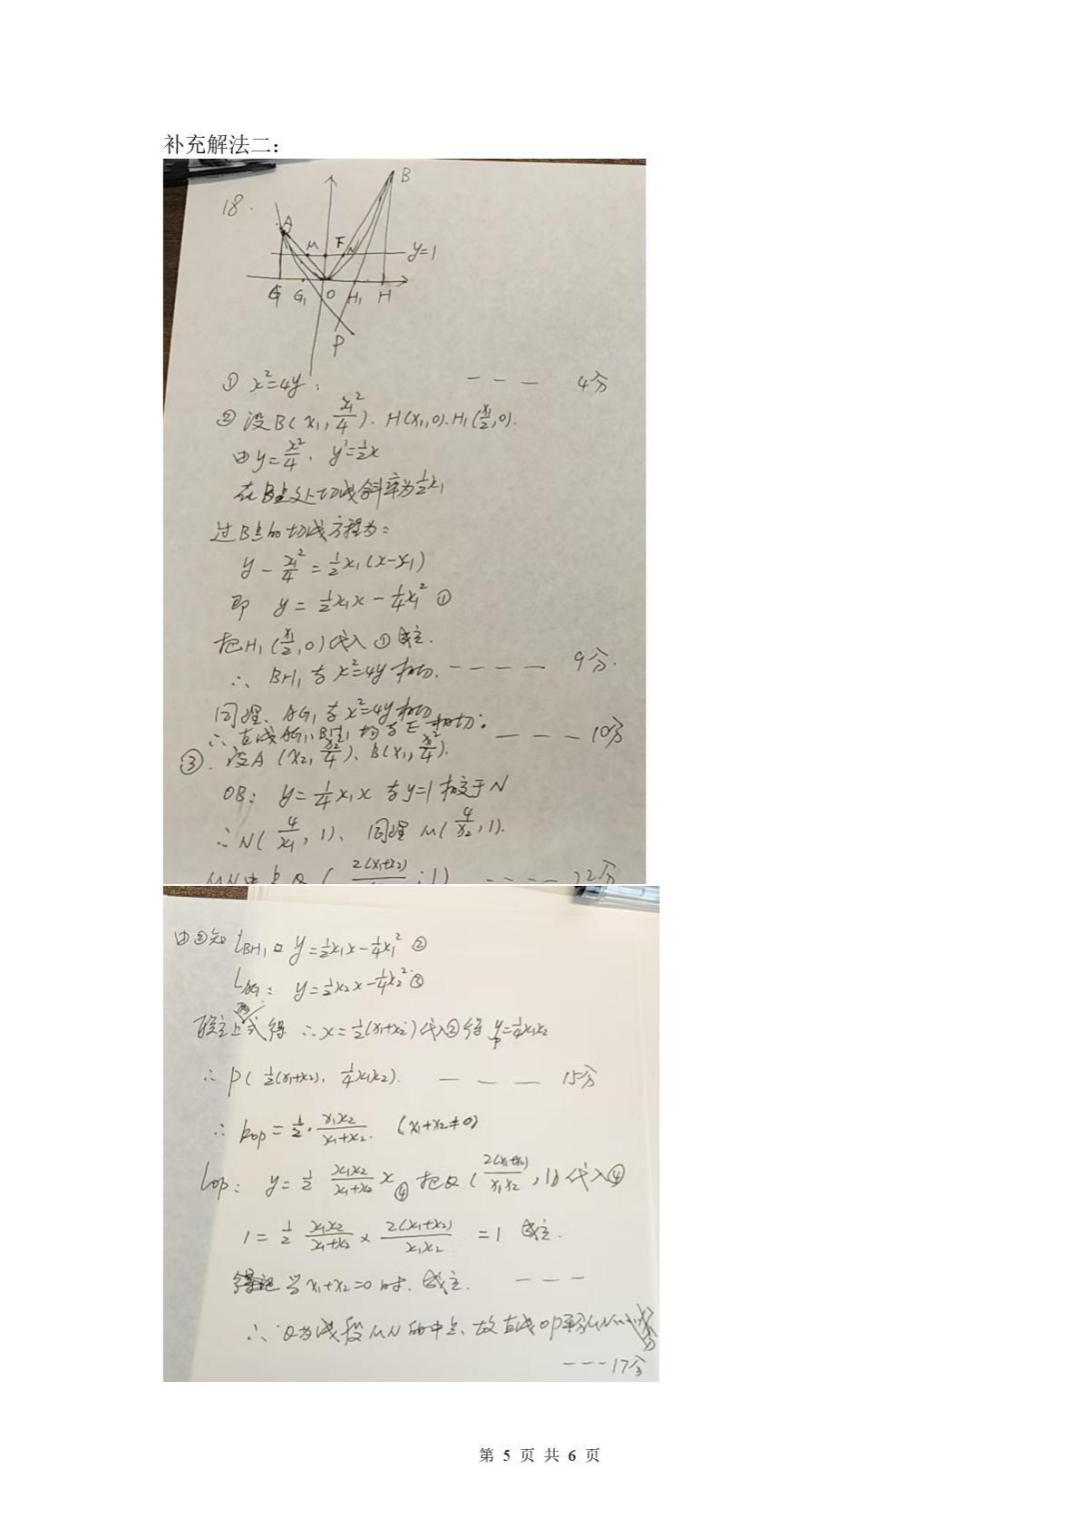 补充解法二：
18.
B
A
M F N y=1
G G₁ O H₁ H
P
① x²=4y; --- 4分
② 设B(x₁, x₁²/4). H(x₁,0). H₁(x₁/2,0).
由y=x²/4, y'=½x
在B点处切线斜率为½x₁
过B点的切线方程为:
y-x₁²/4=½x₁(x-x₁)
即 y=½x₁x-¼x₁² ①
把H₁(x₁/2,0)代入①成立.
∴ BH₁与x²=4y相切. ---- 9分.
同理、AG₁与x²=4y相切
∴直线AG₁,BH₁均与E相切. --- 10分
③. 设A(x₂, x₂²/4)、B(x₁, x₁²/4).
OB: y=¼x₁x 与y=1相交于N
∴N(4/x₁, 1)、同理 M(4/x₂, 1).
MN中点Q( 2(x₁+x₂) , 1) ---- 12分
由②知 l BH₁: y=½x₁x-¼x₁² ②
l AG₁: y=½x₂x-¼x₂² ③
联立上式得 ∴x=½(x₁+x₂)代入②得 y_P=¼x₁x₂
∴P(½(x₁+x₂), ¼x₁x₂). --- 15分
∴ k_OP=½·x₁x₂/(x₁+x₂). (x₁+x₂≠0)
l_OP: y=½ x₁x₂/(x₁+x₂) x ④ 把Q(2(x₁+x₂)/x₁x₂, 1)代入④
1=½ x₁x₂/(x₁+x₂) × 2(x₁+x₂)/x₁x₂ =1 成立.
当x₁+x₂=0时. 成立. ---
∴Q为线段MN的中点、故直线OP平分MN
---17分
第 5 页 共 6 页